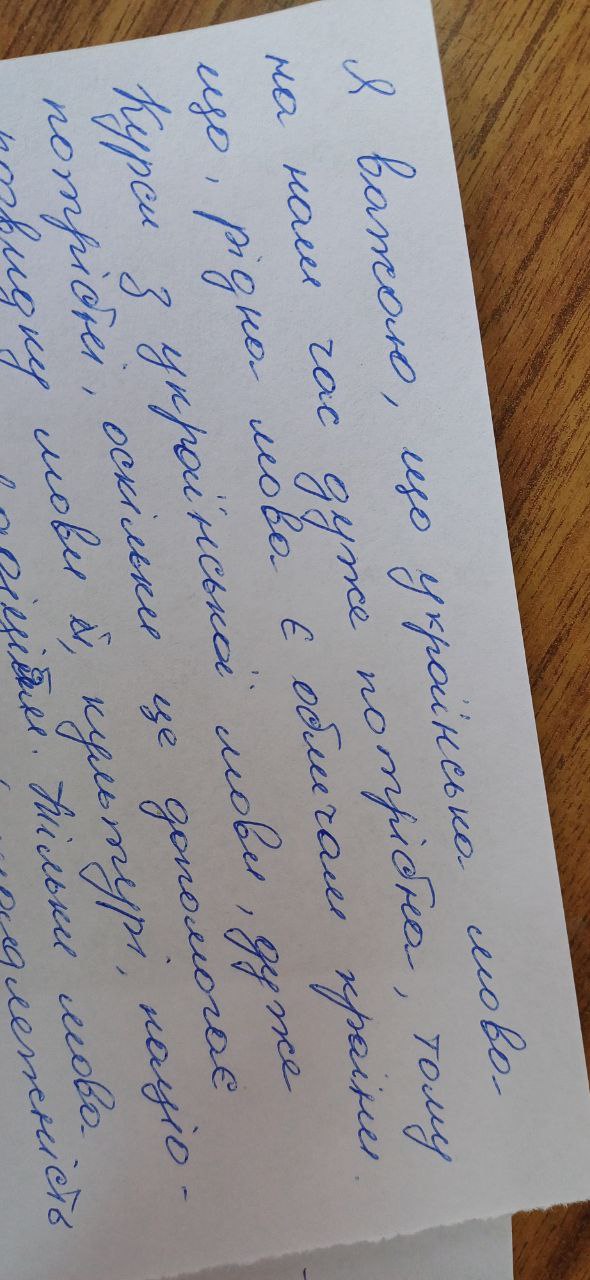 Я вважаю, що українська мова
на наш час дуже потрібна, тому
що, рідна мова є обличам країни.
Курси з української мови, дуже
потрібні, оскільки це допомогає
розвидку мови й, культурі, націо-
Тільки мова
належність